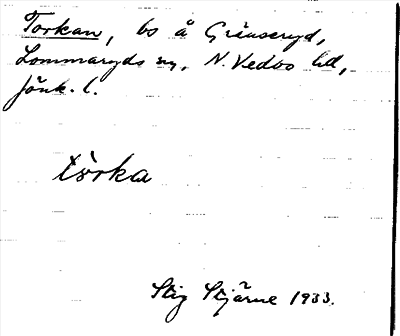 Torkan, bs å Gränseryd,
Lommaryds sn, N. Vedbo hd,
Jönk. l.
tòrka
Stig Stjärne 1933.